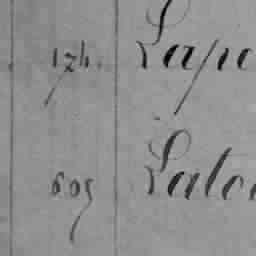 174. Lapo
605 Lato